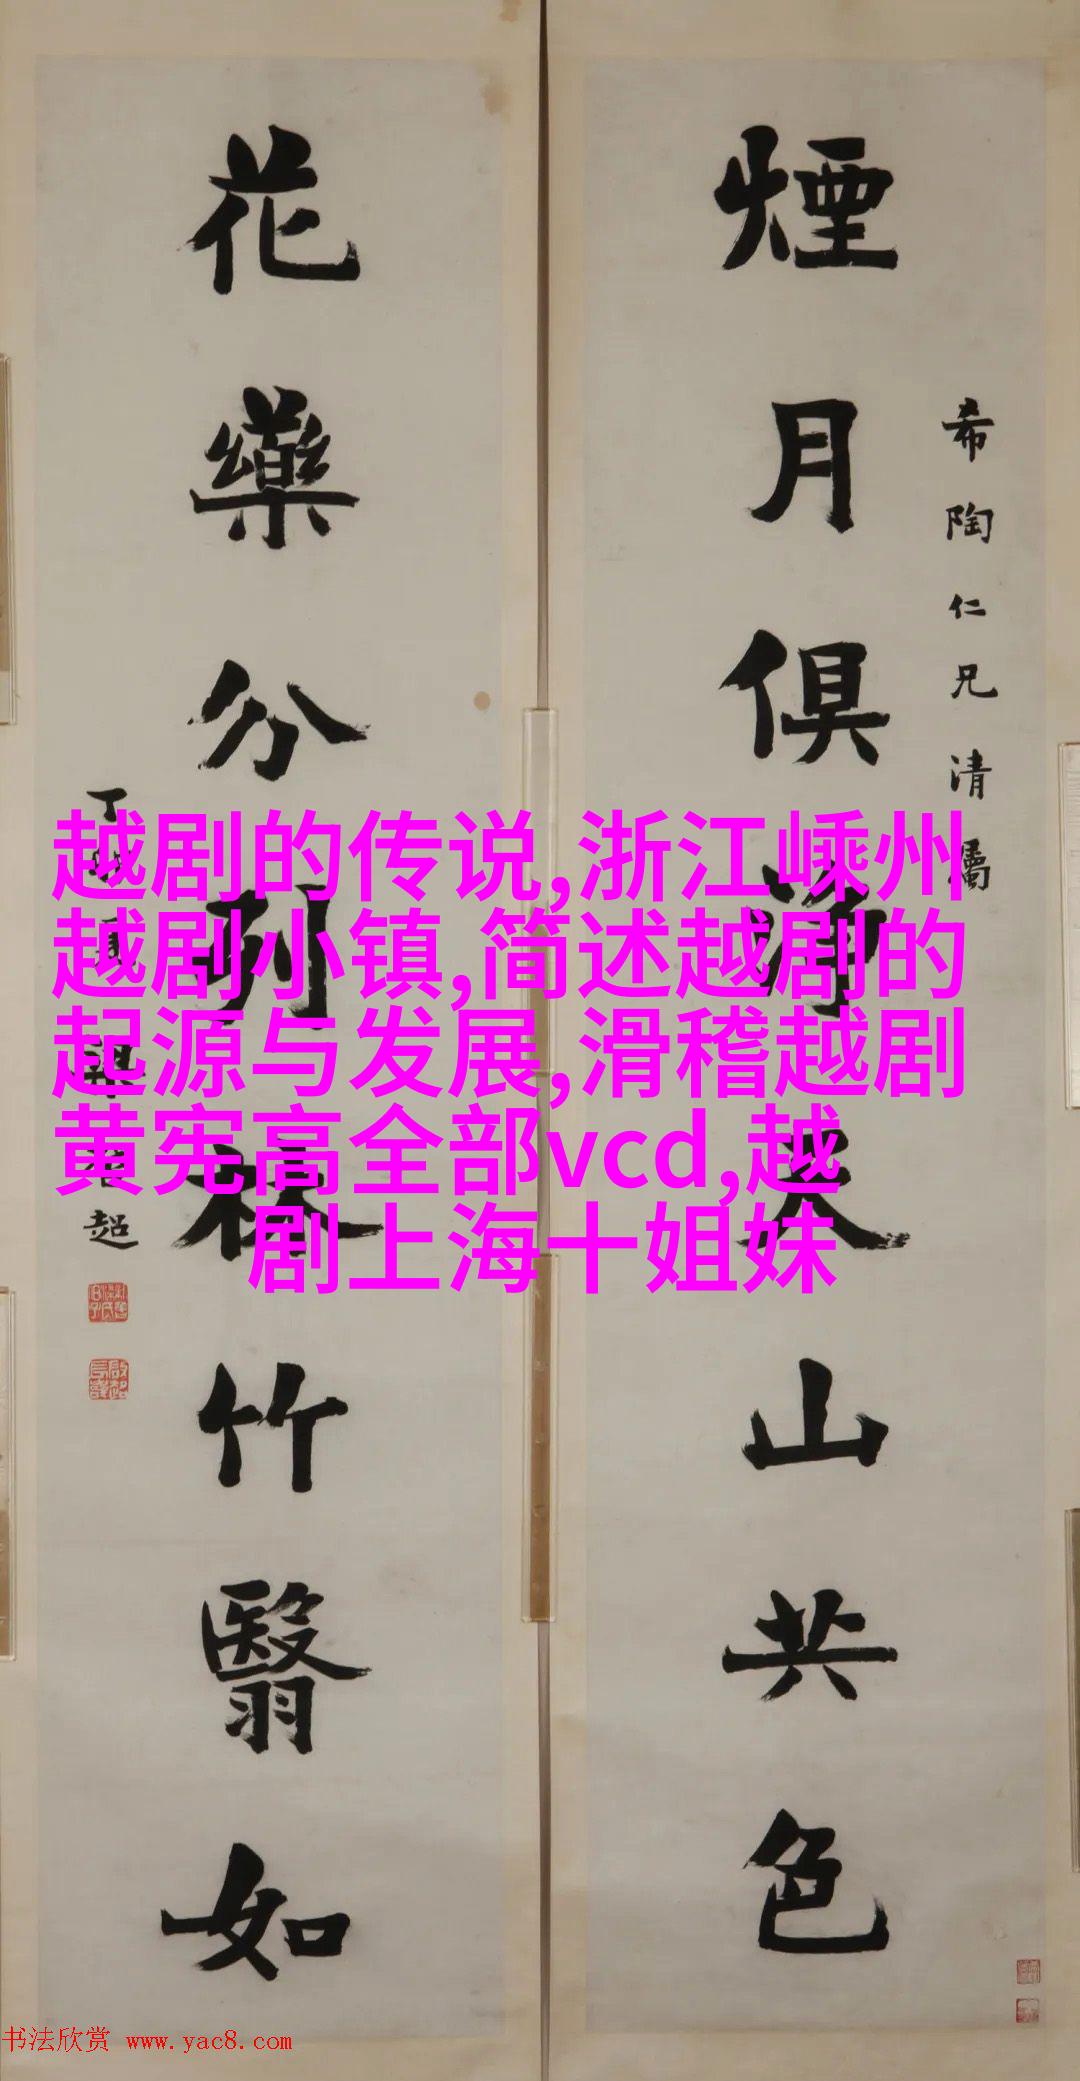 煙月俱清天山共色
希陶仁兄清屬
花藥分列林竹翳如
越剧的传说,浙江嵊州
越剧小镇,简述越剧的
起源与发展,滑稽越剧
黄宪高全部vcd,越
剧上海十姐妹
书法欣赏 www.yac8.com